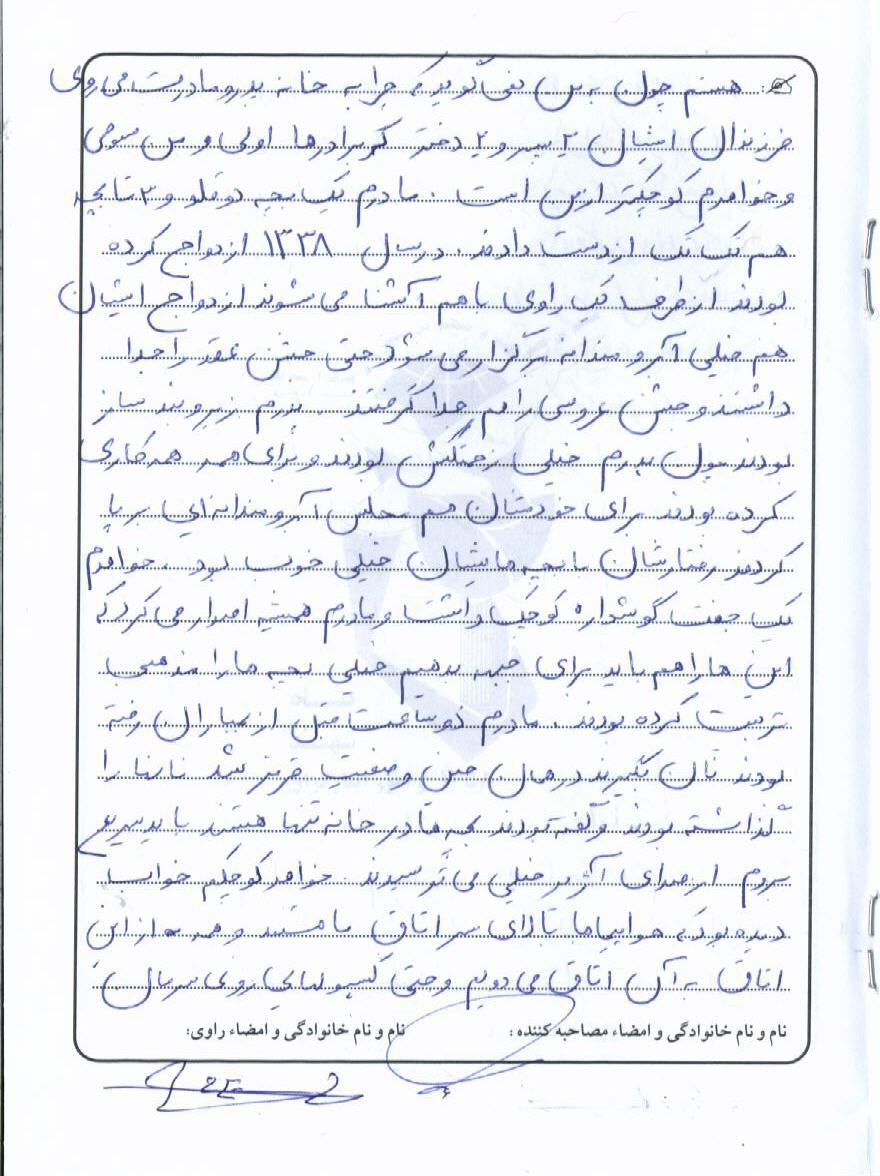 هستم چون به من نمی گوید که چرا به خانه پدر و مادرت می روی
فرزندان ایشان ۲ پسر و ۲ دختر که برادرها اولی و من سومی
و خواهرم کوچکتر از من است . مادرم یک بچه دوقلو و ۳ تا بچه
هم تک تک از دست دادند . در سال ۱۳۳۸ ازدواج کرده
بودند از طرف یک راوی با هم آشنا می شوند ازدواج ایشان
هم خیلی آبرومندانه برگزار می شود حتی جشن عقد را جدا
داشتند و جشن عروسی را هم جدا گرفتند . پدرم زیروبند ساز
بودند چون پدرم خیلی زحمتکش بودند و برای همه همه کاری
کرده بودند برای خودشان هم مجلس آبرومندانه ای بر پا
کردند رفتارشان با بچه هایشان خیلی خوب بود . خواهرم
یک جفت گوشواره کوچک داشت و مادرم همیشه اصرار می کرد که
این ها را هم باید برای جبهه بدهیم خیلی بچه ها را مذهبی
تربیت کرده بودند . مادرم دو ساعت قبل از بمباران رفته
بودند نان بگیرند در همان حین وضعیت قرمز شد نانها را
گذاشته بودند و گفته بودند بچه ها در خانه تنها هستند باید سریع
بروم از صدای آژیر خیلی می ترسیدند . خواهر کوچکم خواب
دیده بود که هواپیماها بالای سر اتاق ما هستند و همه از این
اتاق به آن اتاق می دویم و حتی کپسولهایی روی سرمان
نام و نام خانوادگی و امضاء مصاحبه کننده : نام و نام خانوادگی و امضاء راوی: